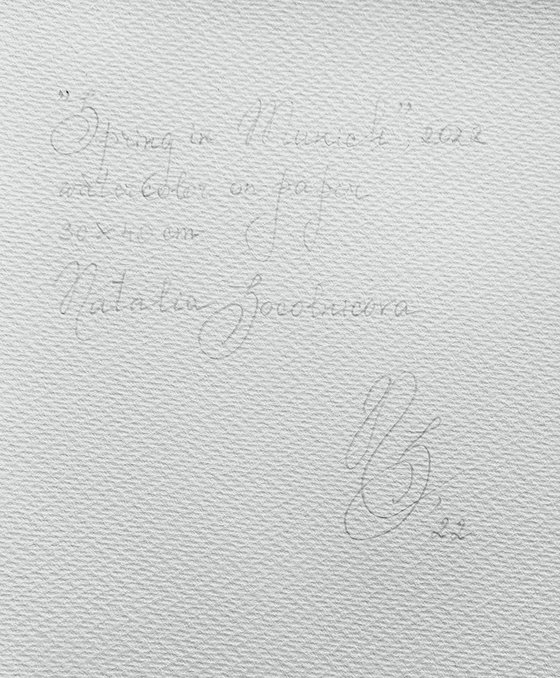 "Spring in Munich", 2022
watercolor on paper
30 x 40 cm
Natalia Socolnicova
NS, 22